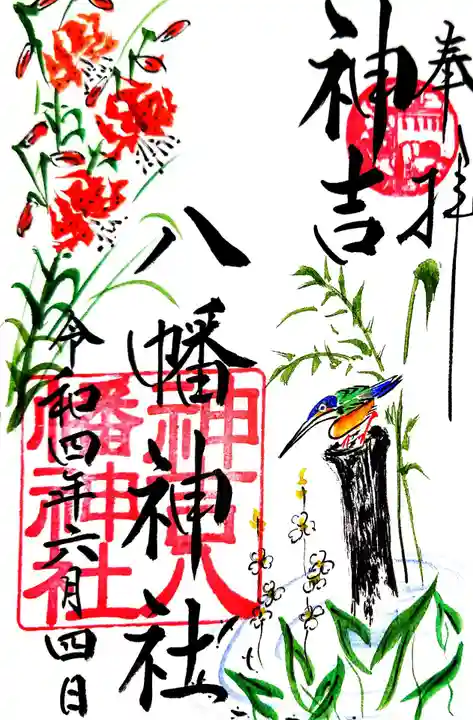 奉拝
神吉
八幡神社
令和四年六月四日
神吉八
幡神社